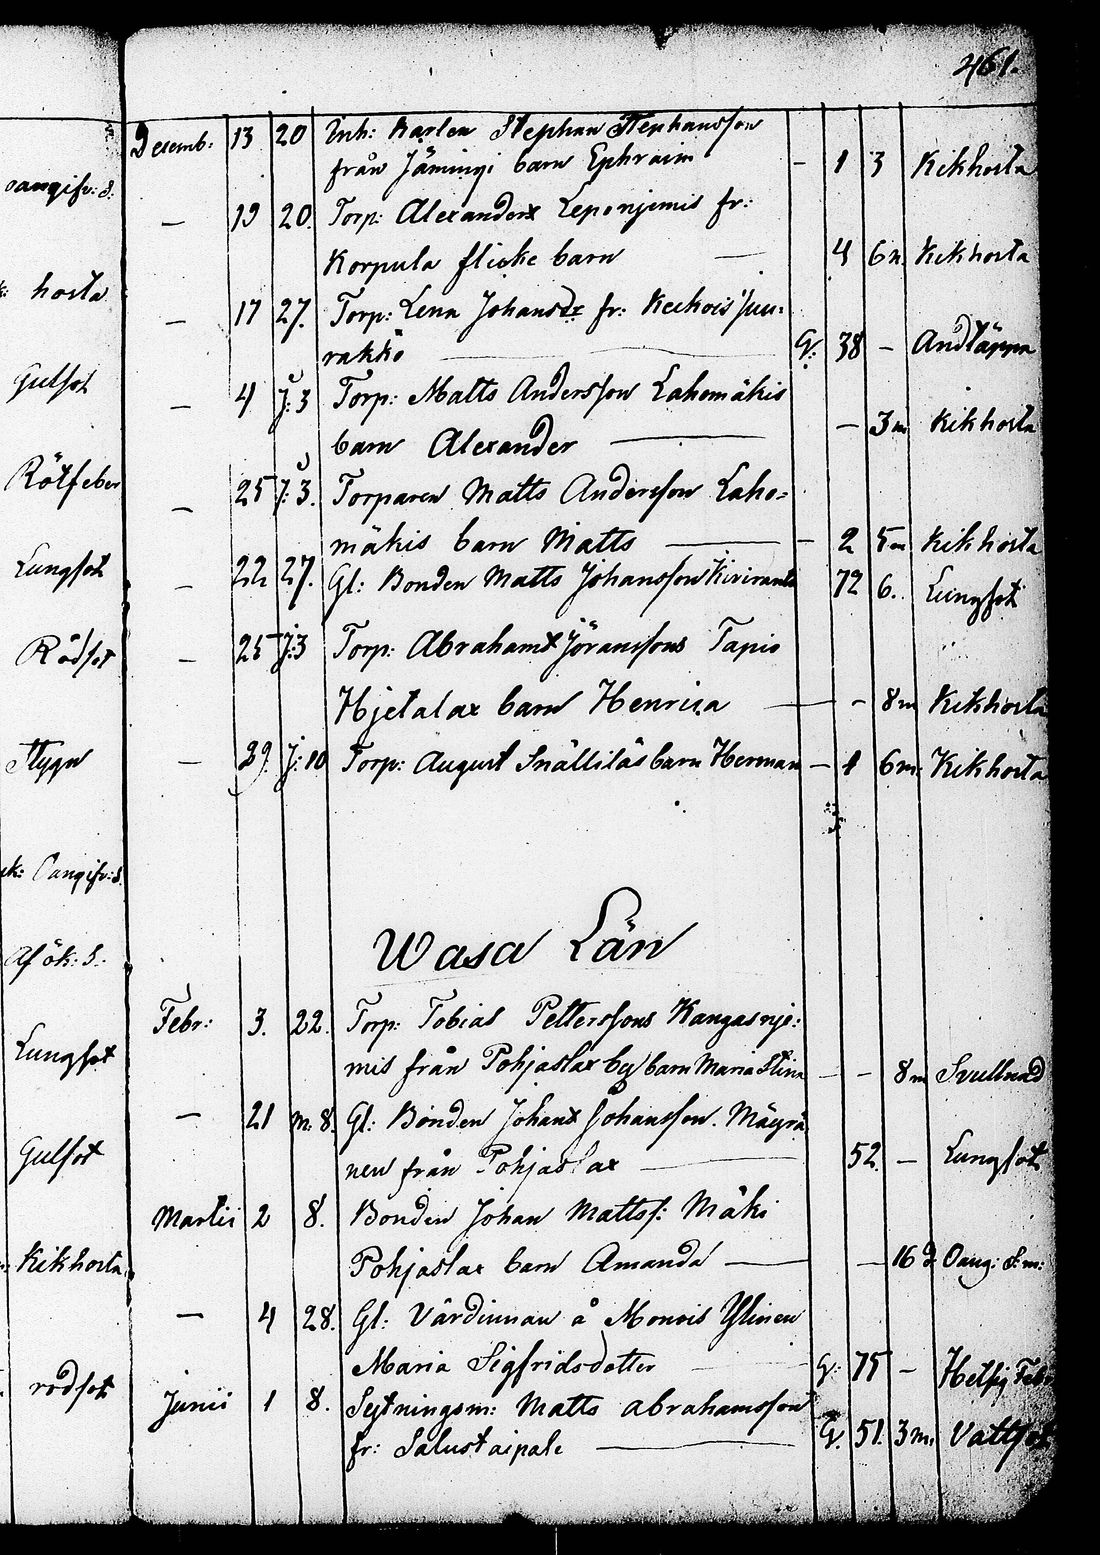 461.
oangifv: S.
hosta
Gulsot
Rötfeber
Lungsot
Rödsot
Stygn
Oangifv: S.
Afök: S.
Lungsot
Gulsot
Kikhosta
rödsot
Decemb: 13 20 Inh: Karlen Stephan Stephansson
från Jämingi barn Ephraim – 1 3 Kikhosta
— 19 20. Torp: Alexanders Leponjemis fr:
Korpula flicke barn — 4 6 m. Kikhosta
— 17 27. Torp: Lena Johansdr fr: Keihois Juu-
rakko — G: 38 – Andtäppa
— 4 J: 3 Torp: Matts Andersson Lahomäkis
barn Alexander — – 3 m Kikhosta
— 25 J: 3. Torparen Matts Andersson Laho=
mäkis barn Matts — – 2 5 m Kikhosta
— 22 27. Gl: Bonden Matts Johansson Kiriranta 72 6. Lungsot
— 25 J: 3 Torp: Abrahams Jöranssons Tapio
Hjetalax barn Henrica — – 8 m Kikhosta
— 29. J: 10 Torp: August Snälliläs barn Herman – 1 6 m: Kikhosta
Wasa Län
Febr: 3. 22. Torp: Tobias Petterssons Kangasnje:
mis från Pohjaslax by barn Maria Stina – – 8 m Svullnad
— 21 m: 8. Gl: Bonden Johan Johansson. Mäyrä
nen från Pohjaslax — 52. – Lungsot
Martii 2 8. Bonden Johan Mattss: Mäki
Pohjaslax barn Amanda — – 16 d. Oang: S: m:
— 4 28. Gl: Värdinnan å Monois Ylinen
Maria Sigfridsdotter — G: 75 –
Junii 1 8. Sytningsm: Matts abrahamsson
fr: Salustaipale — G. 51. 3 m: Vattsot